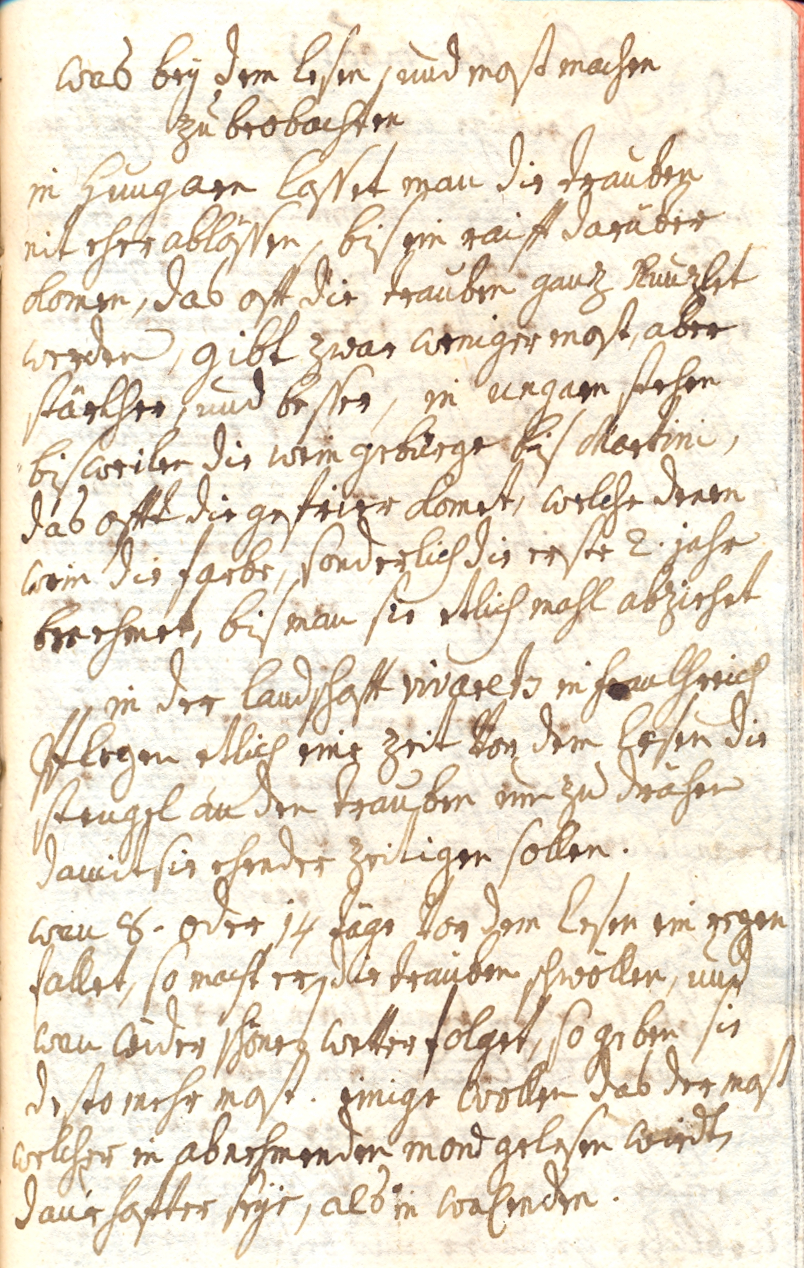 was bey dem lesen, und most machen
zu beobachten
in Hungarn lasset man die trauben
nit eher ablössen, bis ein raiff darüber
komen, das offt die trauben ganz Runzlet
werden, gibt zwar weniger most, aber
stärkher, und besser, in ungarn stehen
bisweilen die wein gebürge bis Martini,
das offt die gefrier komet, welche denen
wein die farbe, sonderlich die erste 2. jahr
benehmet, bis man sie etlich mahl abziehet
in der landschafft vivaretz in frankhreich
Pflegen etlich eine zeit vor dem lesen die
stengel an den trauben um zu drähen
damit sie ehender zeitigen sollen.
wan 8. oder 14 täge vor dem lesen ein regen
fallet, so macht er die trauben schwöllen, und
wan wider schönes wetter folget, so geben sie
desto mehr most. einige wollen das der most
welcher in abnehmenden mond gelesen wirdt,
daurhaffter seye, als in waxenden.